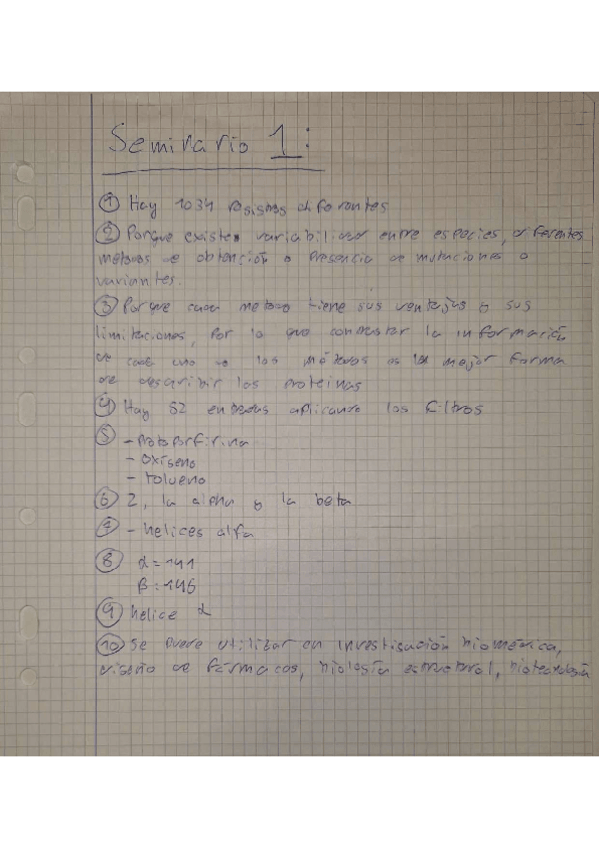 Seminario 1:
① Hay 1034 registros diferentes
② Porque existe variabilidad entre especies, diferentes
métodos de obtención o presencia de mutaciones o
variantes.
③ Porque cada metodo tiene sus ventajas y sus
limitaciones, por lo que contrastar la información
de cada uno de los métodos es la mejor forma
de describir las proteinas
④ Hay 82 entradas aplicando los filtros
⑤ - Protoporfirina
- Oxígeno
- tolueno
⑥ 2, la alpha y la beta
⑦ - helices alfa
⑧ α = 141
β = 146
⑨ helice α
⑩ Se puede utilizar en investigación biomédica,
diseño de fármacos, biología estructural, biotecnología